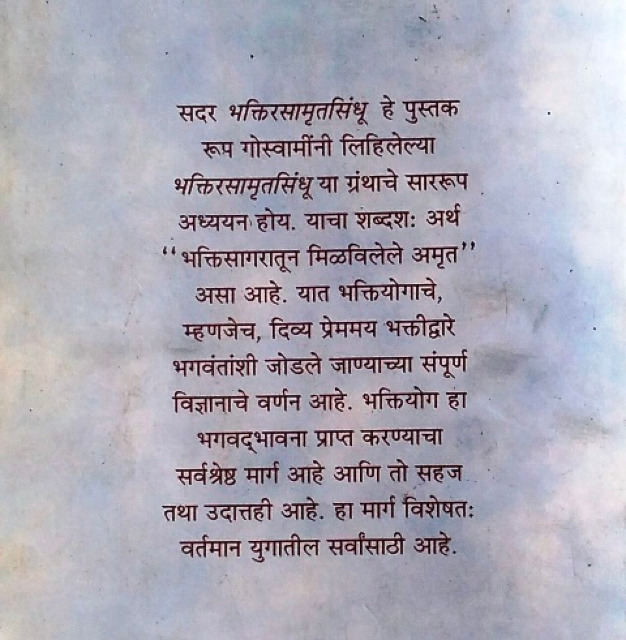 सदर भक्तिरसामृतसिंधू हे पुस्तक
रूप गोस्वामींनी लिहिलेल्या
भक्तिरसामृतसिंधू या ग्रंथाचे साररूप
अध्ययन होय. याचा शब्दशः अर्थ
‘‘भक्तिसागरातून मिळविलेले अमृत’’
असा आहे. यात भक्तियोगाचे,
म्हणजेच, दिव्य प्रेममय भक्तीद्वारे
भगवंतांशी जोडले जाण्याच्या संपूर्ण
विज्ञानाचे वर्णन आहे. भक्तियोग हा
भगवद्‌भावना प्राप्त करण्याचा
सर्वश्रेष्ठ मार्ग आहे आणि तो सहज
तथा उदात्तही आहे. हा मार्ग विशेषतः
वर्तमान युगातील सर्वांसाठी आहे.